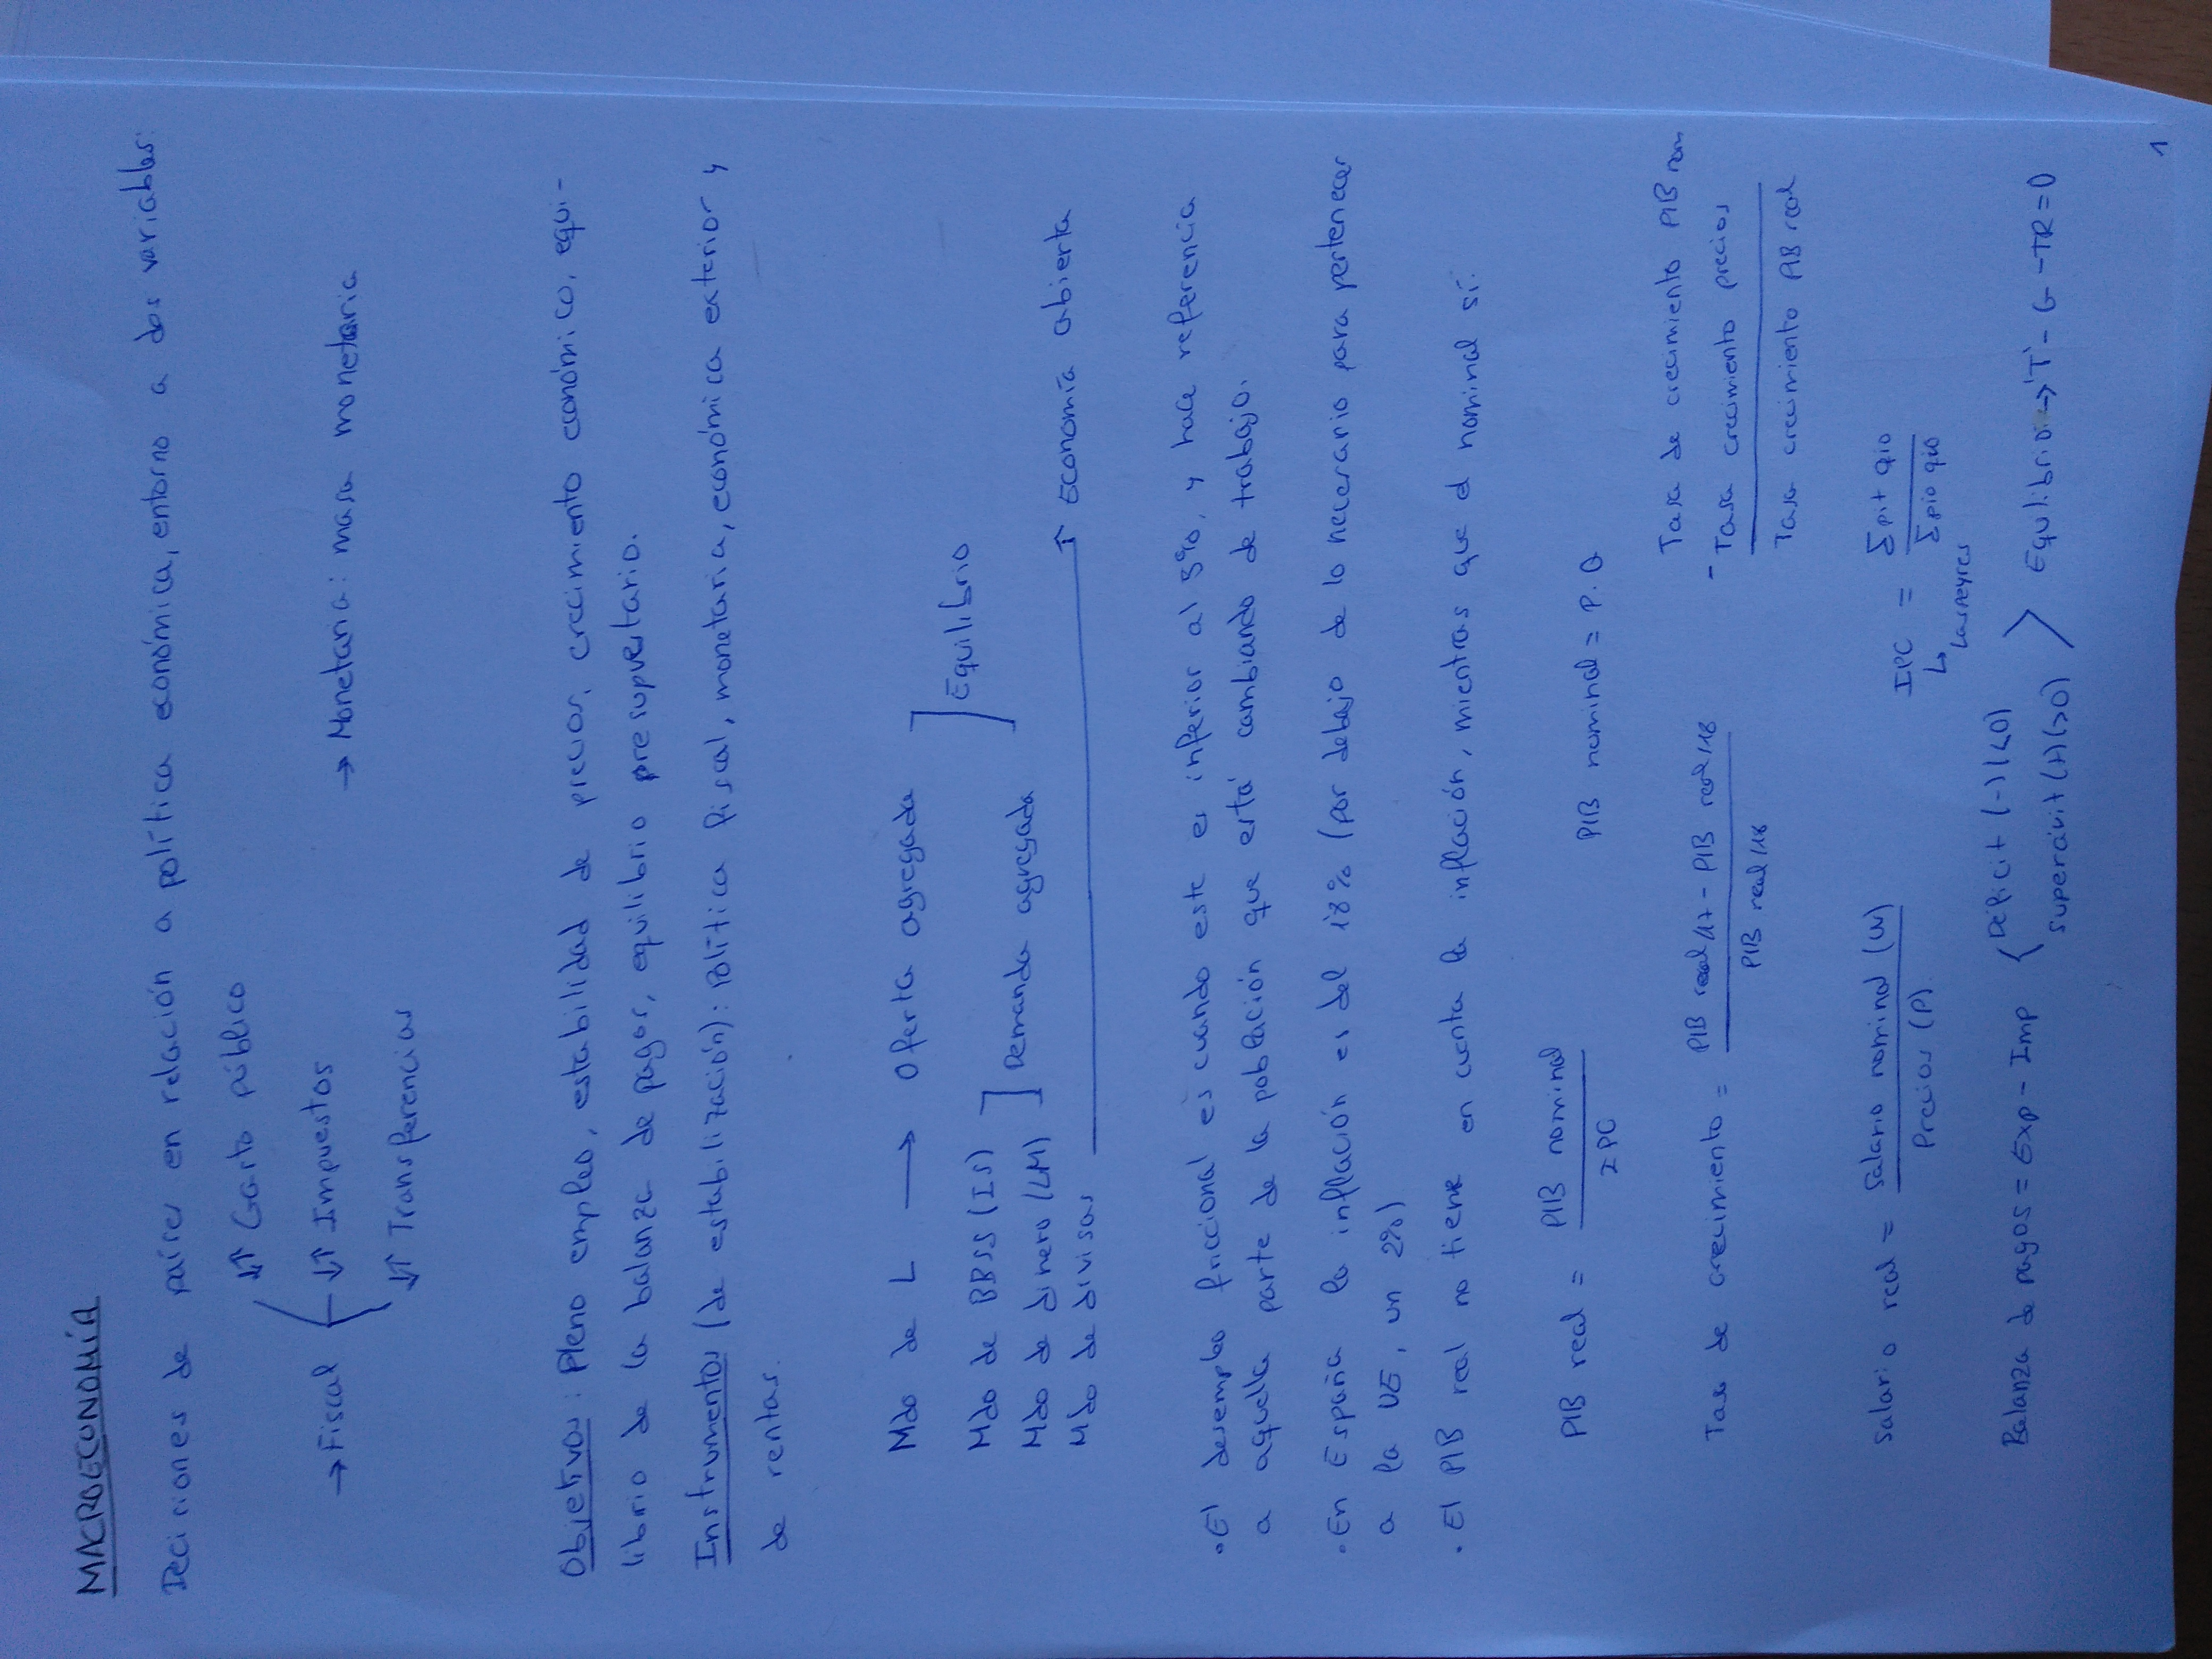 MACROECONOMÍA
Decisiones de países en relación a política económica, entorno a dos variables:
→ Fiscal { ↓↑ Gasto público
↓↑ Impuestos
↓↑ Transferencias
→ Monetaria: masa monetaria
Objetivos: Pleno empleo, estabilidad de precios, crecimiento económico, equi-
librio de la balanza de pagos, equilibrio presupuestario.
Instrumentos (de estabilización): Política fiscal, monetaria, económica exterior y
de rentas.
Mdo de L → Oferta agregada
Mdo de BBSS (IS)
Mdo de dinero (LM) ] Demanda agregada ] Equilibrio
Mdo de divisas → Economía abierta
• El desempleo friccional es cuando este es inferior al 5%, y hace referencia
a aquella parte de la población que está cambiando de trabajo.
• En España la inflación es del 1'8% (por debajo de lo necesario para pertenecer
a la UE, un 2%)
• El PIB real no tiene en cuenta la inflación, mientras que el nominal sí.
PIB real = PIB nominal / IPC
PIB nominal = P.Q
Tasa de crecimiento = PIB real 17 - PIB real 16 / PIB real 16
Tasa de crecimiento PIB nom
- Tasa crecimiento precios
Tasa crecimiento PIB real
Salario real = Salario nominal (W) / Precios (P)
IPC = Σ pit qio / Σ pio qio
↳ Laspeyres
Balanza de pagos = Exp - Imp { Déficit (-) (<0)
Superávit (+) (>0) > Equilibrio → T - G - TR = 0
1